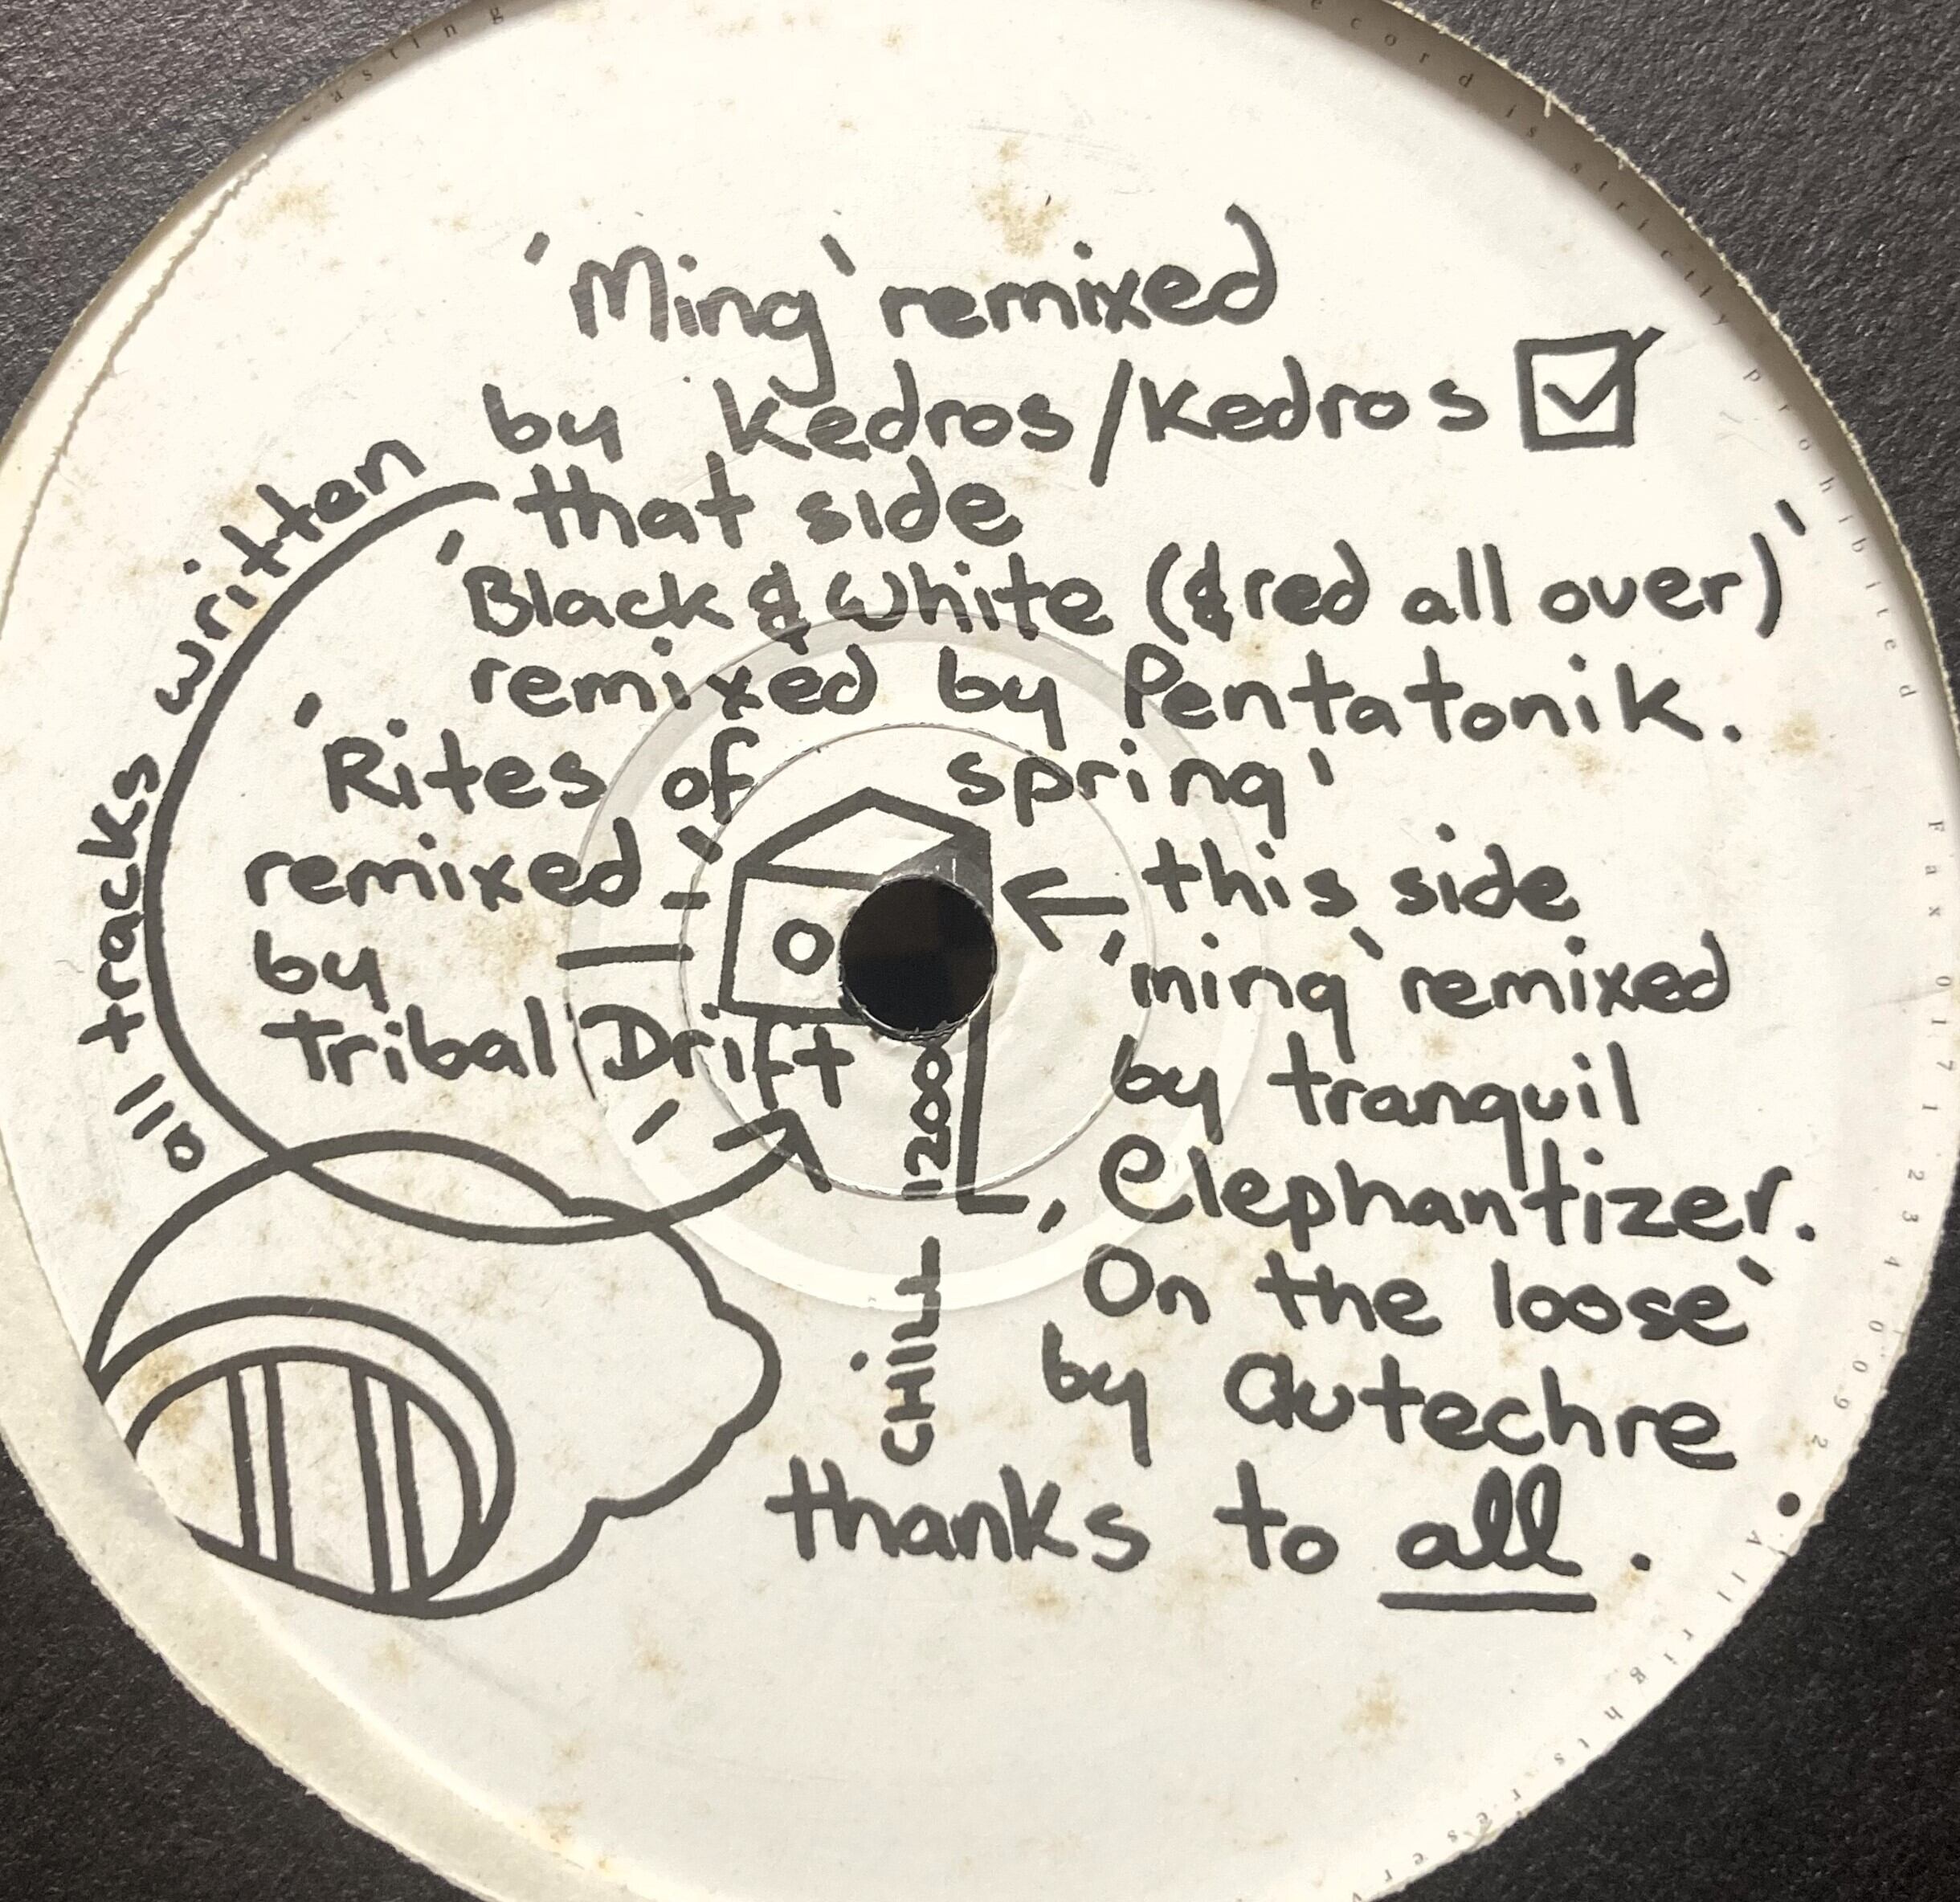 'Ming' remixed
by Kedros/Kedros
that side
'Black & White (& red all over)'
remixed by Pentatonik.
'Rites of spring'
remixed
by
Tribal Drift
this side
'ming' remixed
by tranquil
Elephantizer.
'On the loose'
by autechre
thanks to all.
all tracks written
1200
CHILL
O
ecord is strictly prohibited
Fax 0171 234 0092
All rights reserv
casting